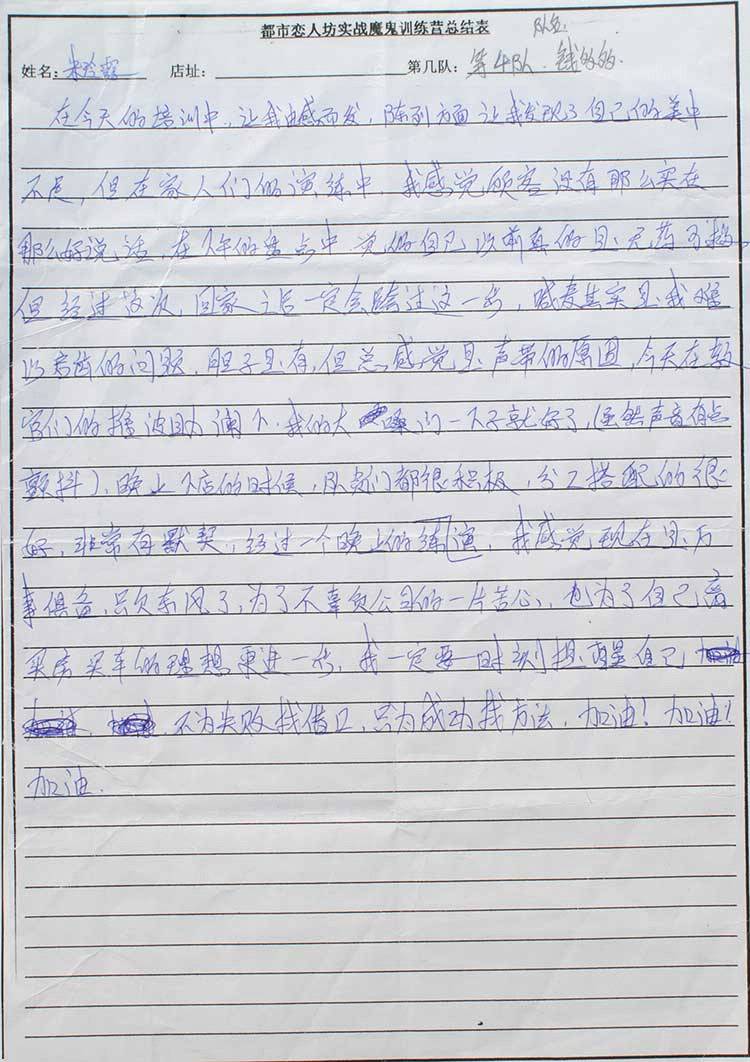 都市恋人坊实战魔鬼训练营总结表
队名
姓名: 朱玲 店址: 第几队: 第4队. 钱的的.
在今天的培训中, 让我由感而发, 陈列方面让我发现了自己的美中
不足, 但在家人们的演练中, 我感觉顾客没有那么实在
那么好说话, 在下午的盘点中觉的自己以前真的是无药可救
但经过这次, 回家之后一定会跨过这一步, 喊麦其实是我难
以启齿的问题, 胆子是有, 但总感觉是声带的原因, 今天在教
官们的推波助澜下. 我的大嗓门一下子就好了, (虽然声音有点
颤抖), 晚上下店的时候, 队员们都很积极, 分工搭配的很
好, 非常有默契, 经过一个晚上的练演, 我感觉现在是万
事俱备, 只欠东风了, 为了不辜负公司的一片苦心, 也为了自己离
买房买车的理想更进一步, 我一定要时刻提醒自己
不为失败找借口, 只为成功找方法, 加油! 加油!
加油.